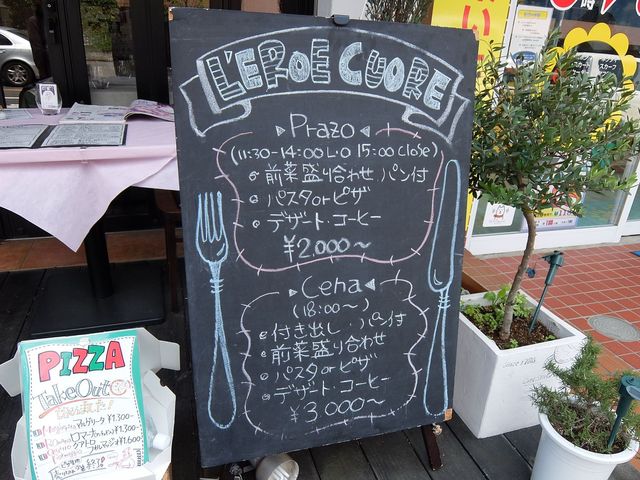 L'EROE CUORE
Prazo
(11:30-14:00 L.O 15:00 close)
前菜盛り合わせ パン付
パスタ or ピザ
デザート・コーヒー
¥2,000～
Cena
(18:00～)
付き出し パン付
前菜盛り合わせ
パスタ or ピザ
デザート・コーヒー
¥3,000～
PIZZA
Take Out
マルゲリータ ¥1,300-
ロマーナ ¥1,300-
¥1,600-